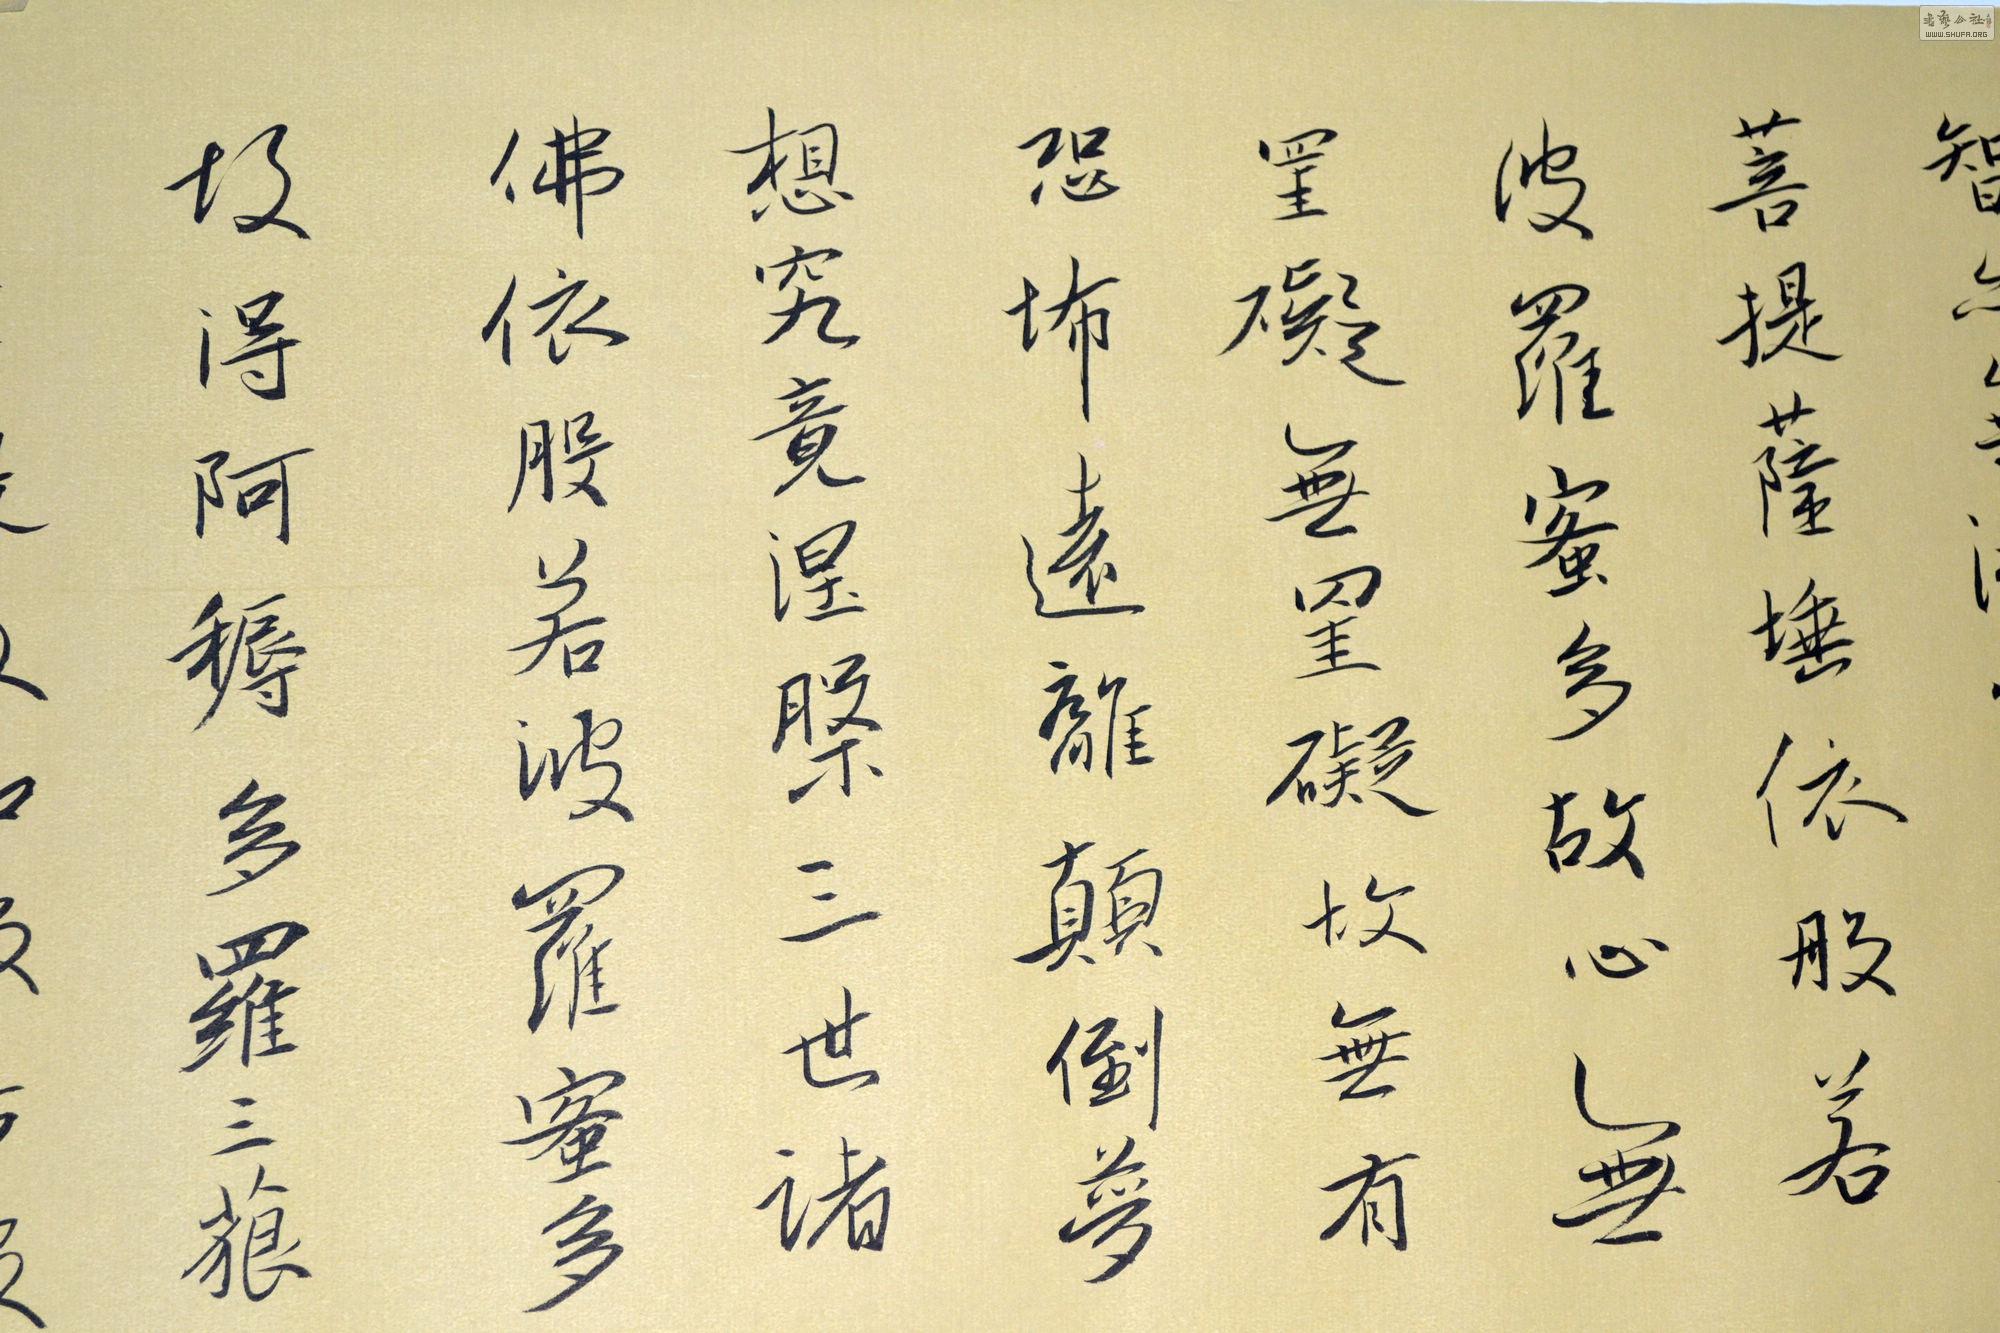 智
菩提薩埵依般若
波羅蜜多故心無
罣礙無罣礙故無有
恐怖遠離顛倒夢
想究竟涅槃三世諸
佛依般若波羅蜜多
故得阿耨多羅三藐
WWW.SHUFA.ORG